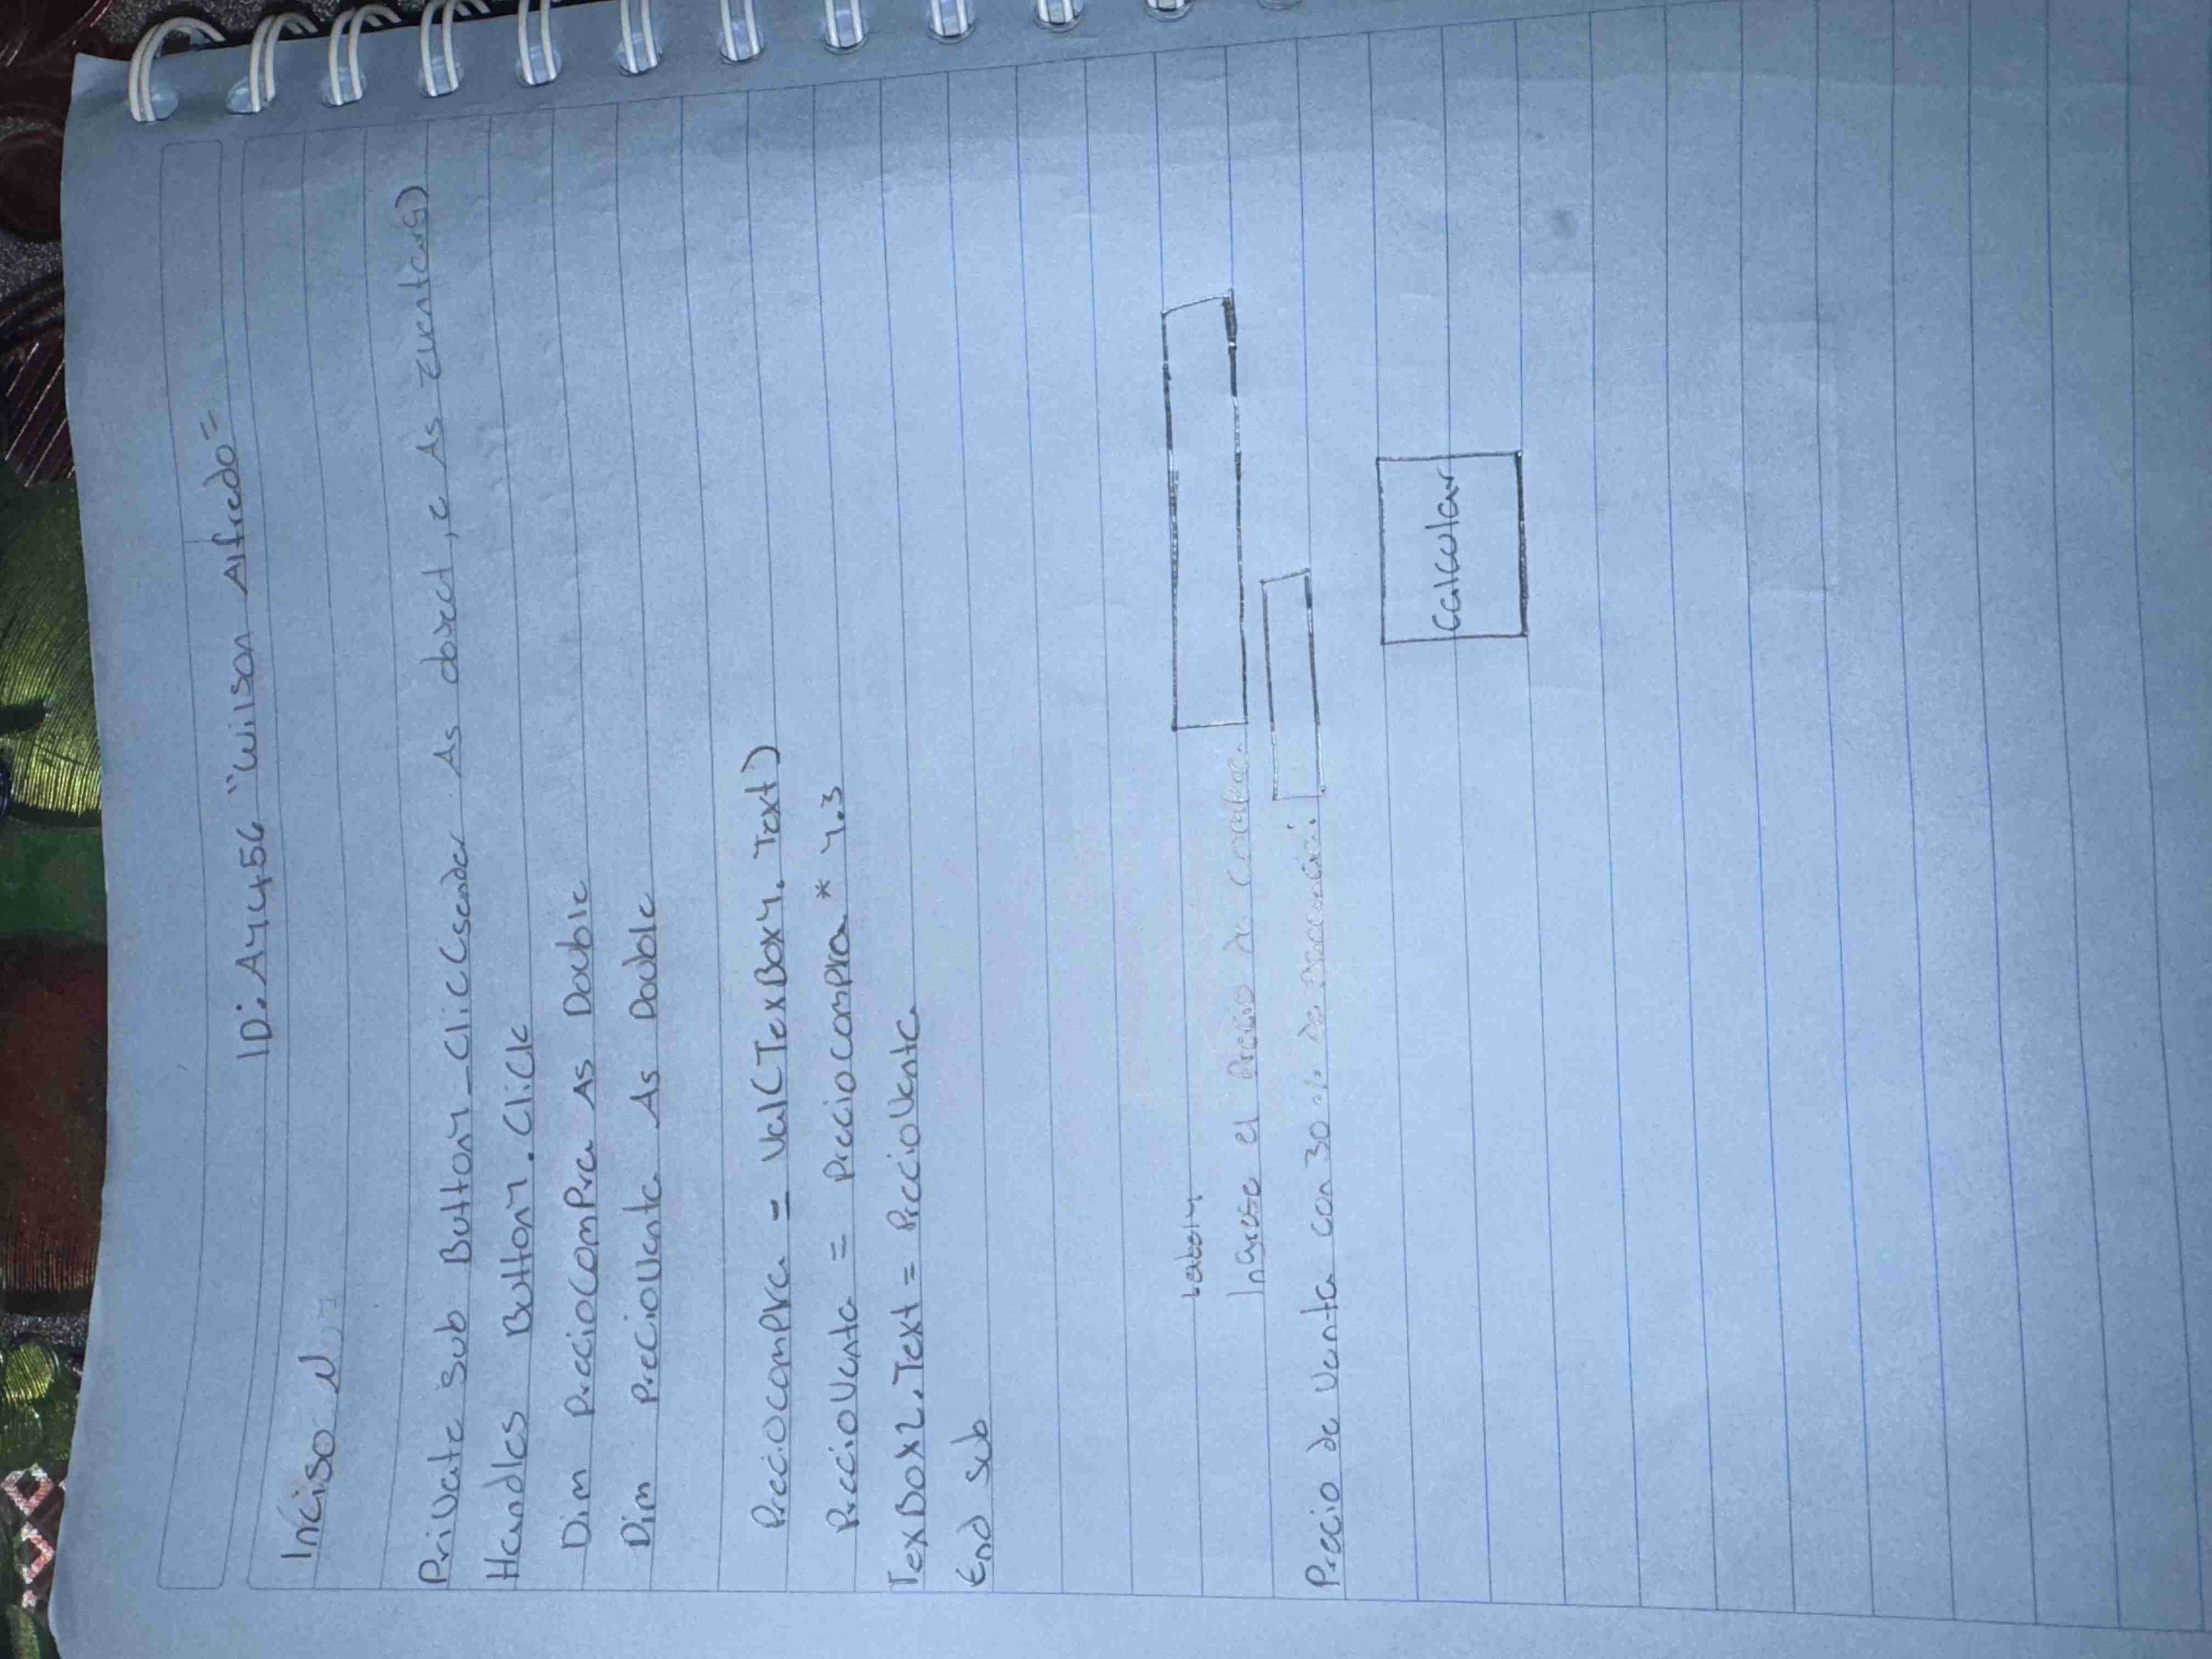 ID: A14456 "Wilson Alfredo"
Inciso N
Private Sub Button1_Clic(sender As obrect, e As Eventarg)
Handles Button1.Click
Dim PrecioComPra As Double
Dim PrecioVenta As Double
Preciocompra = Val(TexBox1.Text)
PrecioVenta = Preciocompra * 1.3
TexBox2.Text = PrecioVenta
End Sub
Label1
Ingrese el Precio de Compra.
Precio de Venta con 30% de
Calcular